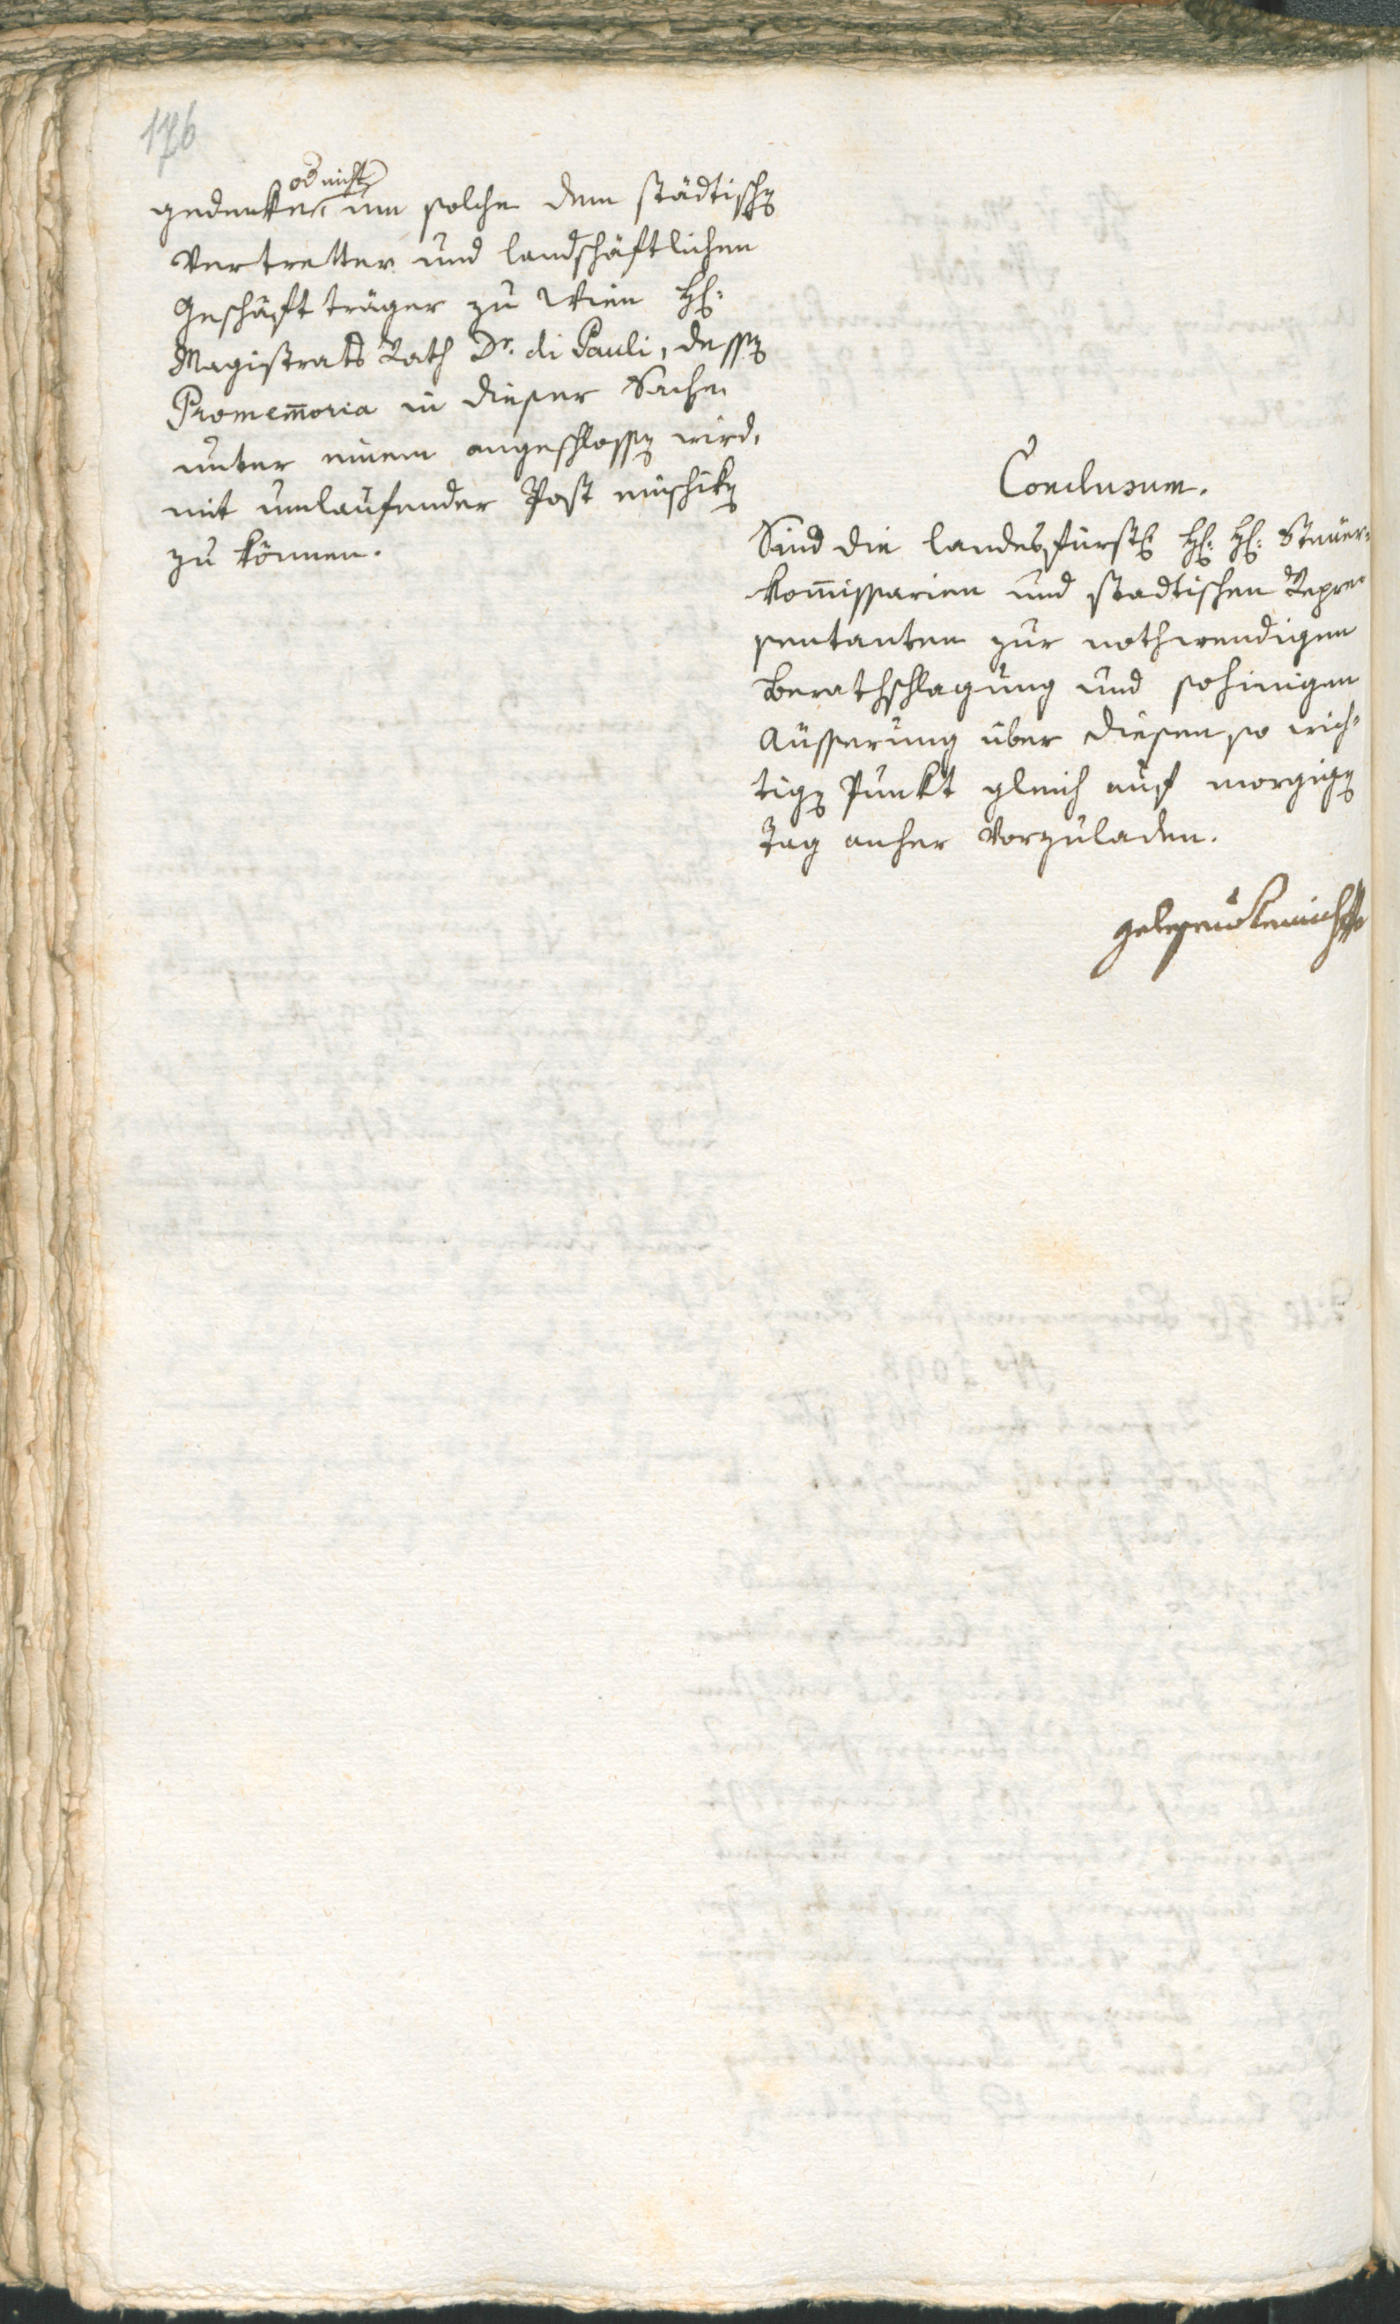 176
od nicht,
gedenke, um solche dem städtischen
Vertretter und landschäftlichen
Geschäft träger zu Wien H:
Magistrats Rath Dr. di Pauli, dessen
Promem̄oria in dieser Sache
unter einem angeschlossen wird,
mit umlaufender Post einschiken
zu können.
Conclusum.
Sind die landesfürstl H: H: Steuer=
kom̄issarien und stadtischen Repre=
sentanten zur nothwendigen
Berathschlagung und sohinigen
Äusserung über diesen so wich=
tigen Punkt gleich auf morgigen
Tag anher vorzuladen.